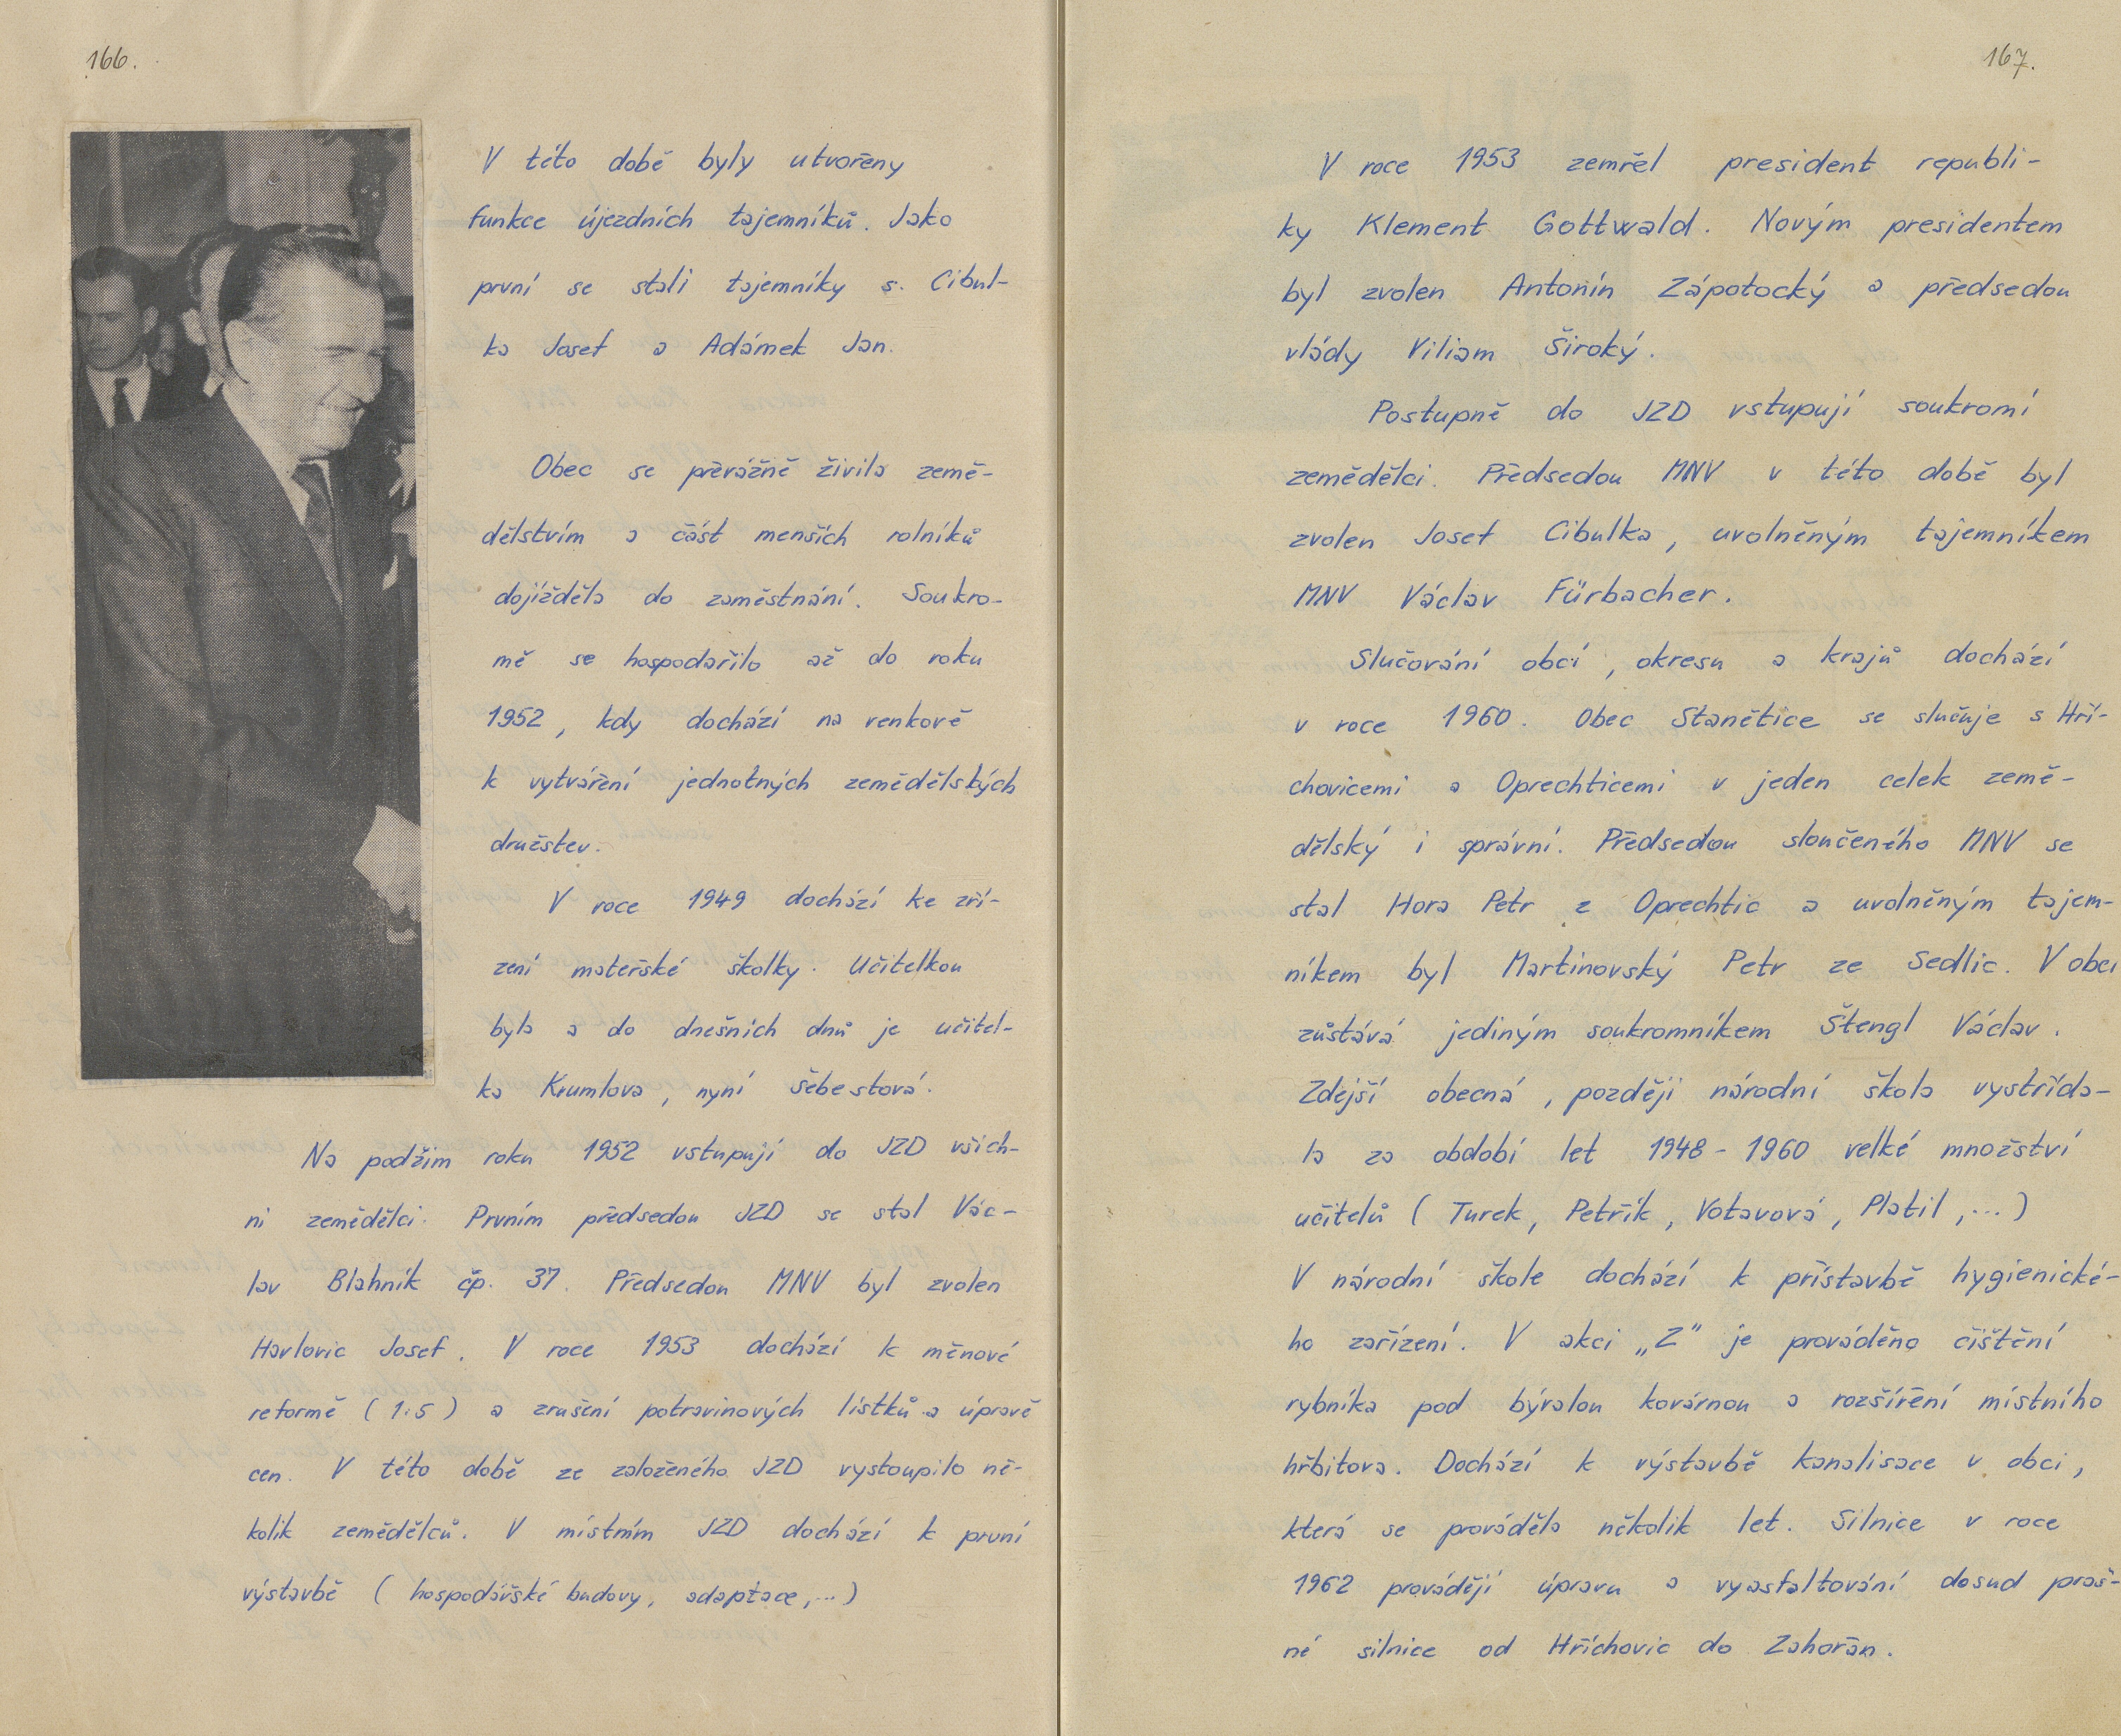 166.
V této době byly utvořeny
funkce újezdních tajemníků. Jako
první se stali tajemníky s. Cibul-
ka Josef a Adámek Jan.
Obec se převážně živila země-
dělstvím a část menších rolníků
dojížděla do zaměstnání. Soukro-
mě se hospodařilo až do roku
1952, kdy dochází na venkově
k vytváření jednotných zemědělských
družstev.
V roce 1949 dochází ke zří-
zení mateřské školky. Učitelkou
byla a do dnešních dnů je učitel-
ka Krumlova, nyní Šebestová.
Na podzim roku 1952 vstupují do JZD všich-
ni zemědělci. Prvním předsedou JZD se stal Vác-
lav Blahník čp. 37. Předsedou MNV byl zvolen
Havlovic Josef. V roce 1953 dochází k měnové
reformě (1:5) a zrušení potravinových lístků a úpravě
cen. V této době ze založeného JZD vystoupilo ně-
kolik zemědělců. V místním JZD dochází k první
výstavbě (hospodářské budovy, adaptace,...)
167.
V roce 1953 zemřel president republi-
ky Klement Gottwald. Novým presidentem
byl zvolen Antonín Zápotocký a předsedou
vlády Viliam Široký.
Postupně do JZD vstupují soukromí
zemědělci. Předsedou MNV v této době byl
zvolen Josef Cibulka, uvolněným tajemníkem
MNV Václav Fürbacher.
Slučování obcí, okresu a krajů dochází
v roce 1960. Obec Stanětice se slučuje s Hří-
chovicemi a Oprechticemi v jeden celek země-
dělský i správní. Předsedou sloučeného MNV se
stal Hora Petr z Oprechtic a uvolněným tajem-
níkem byl Martinovský Petr ze Sedlic. V obci
zůstává jediným soukromníkem Štengl Václav.
Zdejší obecná, později národní škola vystřída-
la za období let 1948 - 1960 velké množství
učitelů (Turek, Petřík, Votavová, Platil,...)
V národní škole dochází k přístavbě hygienické-
ho zařízení. V akci „Z" je prováděno čištění
rybníka pod bývalou kovárnou a rozšíření místního
hřbitova. Dochází k výstavbě kanalisace v obci,
která se prováděla několik let. Silnice v roce
1962 provádějí úpravu a vyasfaltování dosud praš-
né silnice od Hříchovic do Zahořan.